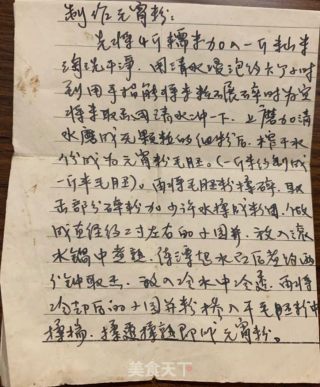 制作元宵粉：
先将4斤糯米加入一斤籼米
淘洗干净，用清水浸泡约六了小时
到用手指能将米粒碾碎时为宜
将米取出用清水冲一下，上磨加清
水磨成无颗粒的细粉后，榨干水
份成为元宵粉毛胚。（一斤米约制成
一斤半毛胚）。再将毛胚粉揉碎，取
出部分碎粉加少许水揉成粉团，做
成直径约二寸左右的小园饼，放入滚
水锅中煮熟，待漂起水面后煮约
分钟取出，放入冷水中冷透，再将
冷却后的小园饼粉搀入干毛胚粉中
揉搞，揉透揉熟即成元宵粉。
美食天下